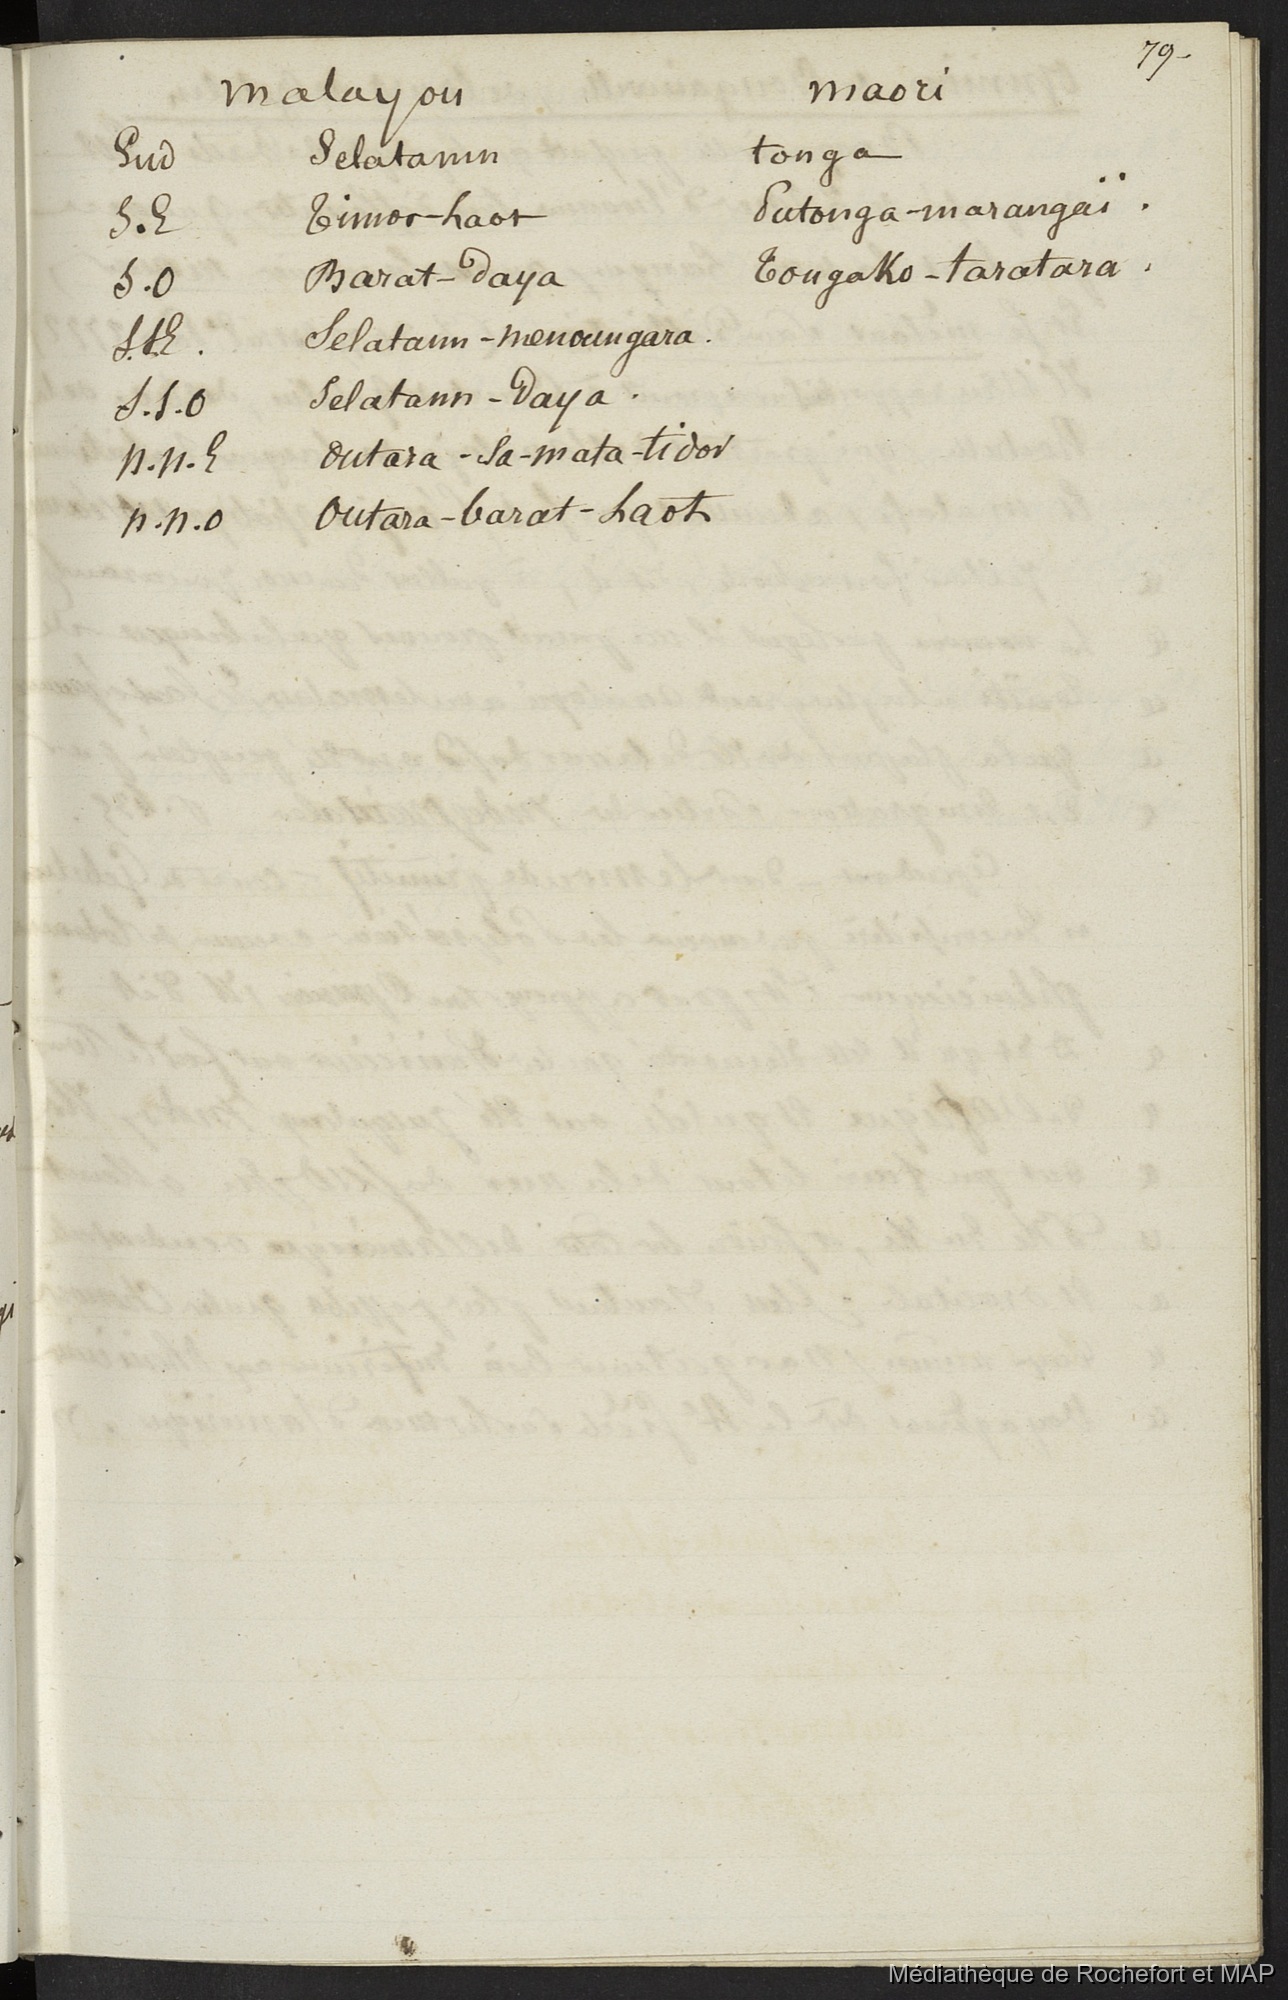 79-
malayou maori
Sud Selatann tonga
S.E Timor-haot Putonga-marangaï .
S.O Barat-Daya Tougako-taratara .
S.S.E . Selatann-menoungara .
S.S.O Selatann-Daya .
n.n.E Outara-Sa-mata-tidor
n.n.O Outara-barat-haot
Médiathèque de Rochefort et MAP